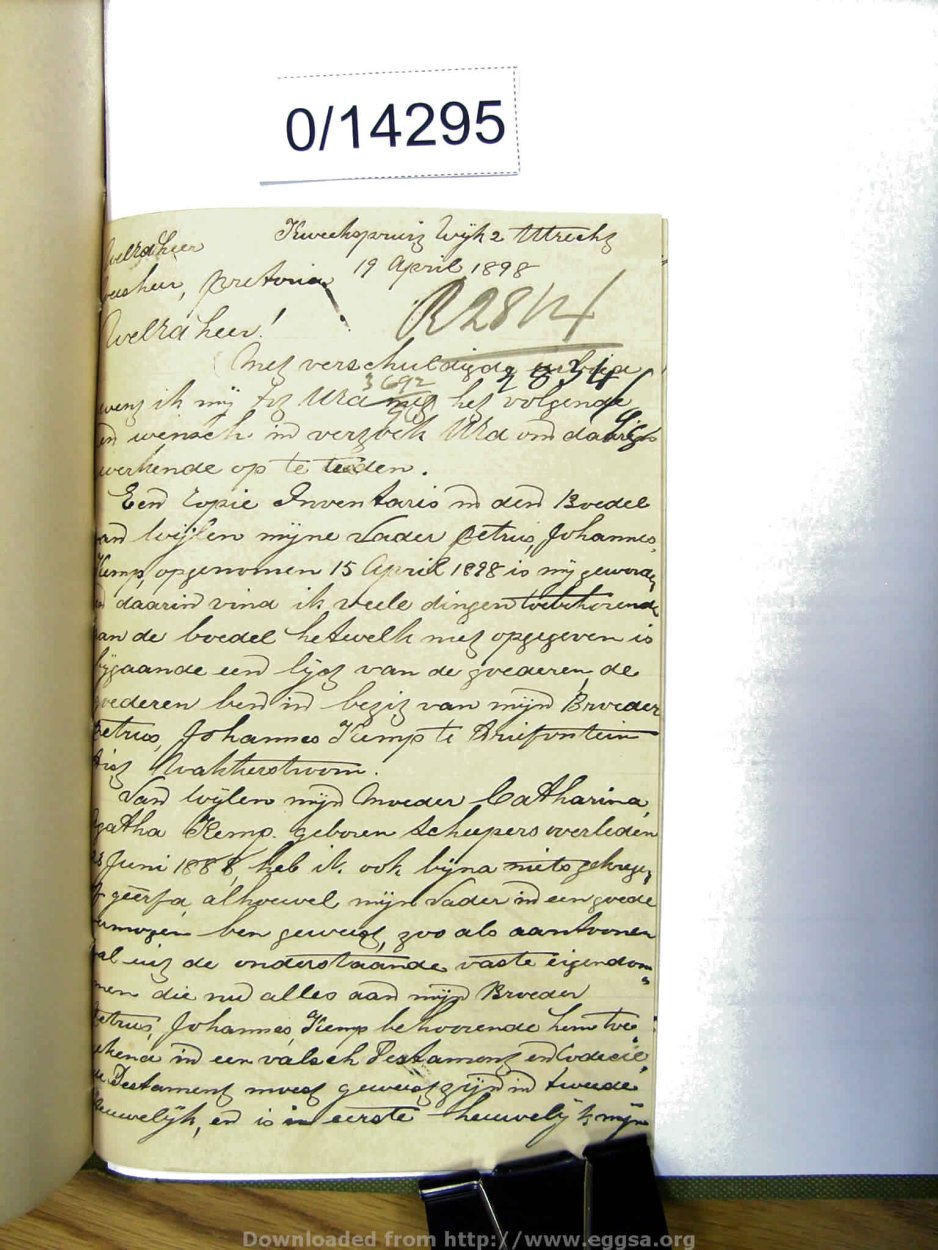 0/14295
Kweekspruit Wijk 2 Utrecht
WelEd heer
19 April 1898
Weesheer, Pretoria
R 2814/
WelEd heer!
Met verschuldigde
2834/98
3692
wens ik mij tot UEd met het volgende
en wensch en verzoek UEd om
werkende op te treden.
Een Copie Inventaris in den Boedel
van wijlen mijne Vader Petrus Johannes
Kemp, opgenomen 15 April 1898 is mij geworden
en daarin vind ik veele dingen toebehorende
aan de boedel hetwelk niet opgegeven is
bijgaande een lijst van de goederen, de
goederen ben in bezit van mijn Broeder
Petrus Johannes Kemp te Driefontein
Dist Wakkerstroom.
Van wijlen mijn Moeder Catharina
Agatha Kemp. geboren Scheepers overleden
Juni 1888, heb ik ook bijna niets gekregen
of geërfd, alhoewel mijn Vader in een goede
vermogen ben geweest, zoo als aantoonen
zal uit de onderstaande vaste eigendom
men die nu alles aan mijn Broeder
Petrus Johannes Kemp behoorende hem toe
kend in een valsch Testament en Codicil,
de Testament moest geweest zijn in tweede
heuwelijk, en is in eerste heuwelijk mijn
Downloaded from http://www.eggsa.org